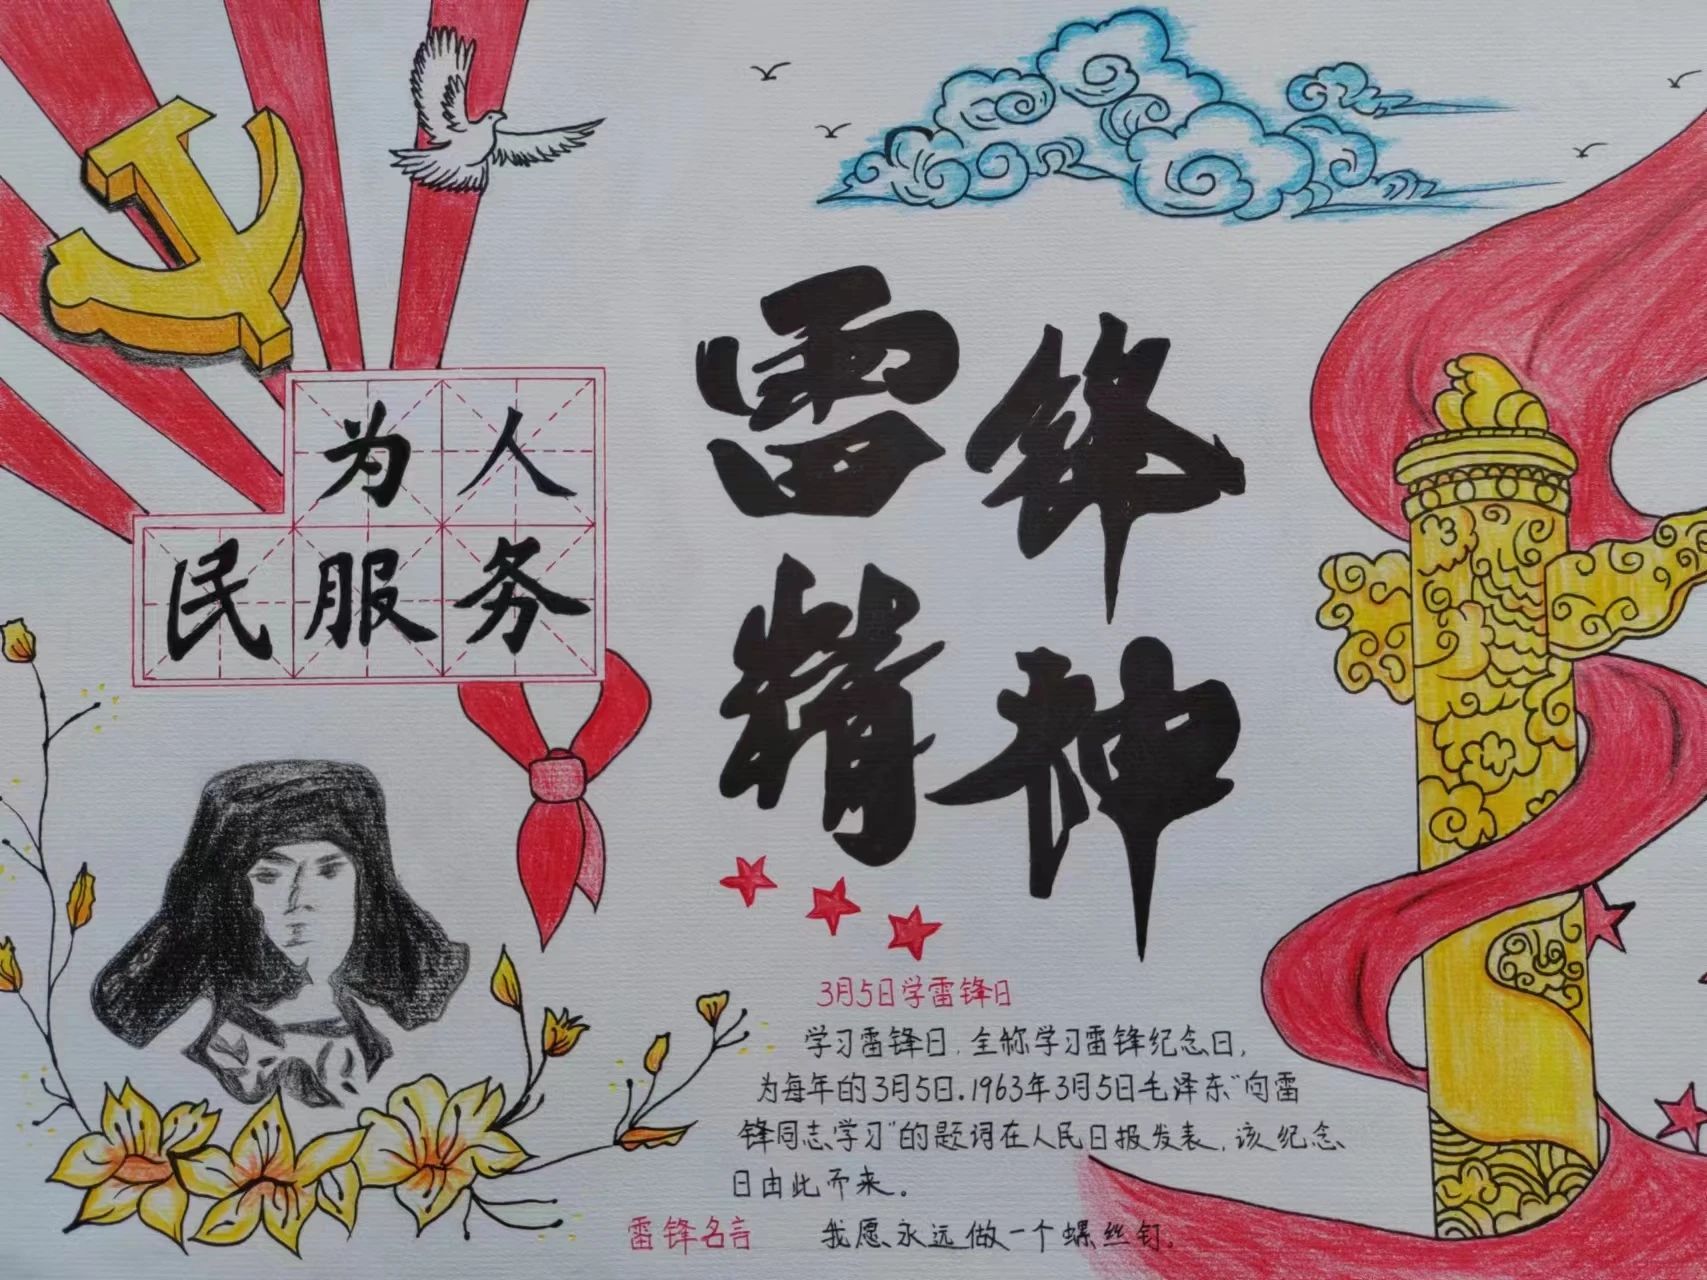 为人
民服务
雷锋
精神
3月5日学雷锋日
学习雷锋日,全称学习雷锋纪念日,
为每年的3月5日.1963年3月5日毛泽东"向雷
锋同志学习"的题词在人民日报发表,该纪念
日由此而来。
雷锋名言 我愿永远做一个螺丝钉.